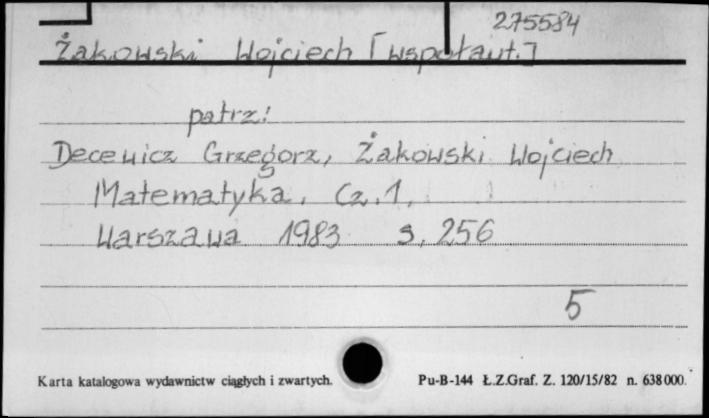 275584
Żakowski Wojciech [współaut.]
patrz:
Decewicz Grzegorz, Żakowski Wojciech
Matematyka. Cz. 1.
Warszawa 1983 s. 256
5
Karta katalogowa wydawnictw ciągłych i zwartych.
Pu-B-144 Ł.Z.Graf. Z. 120/15/82 n. 638 000.